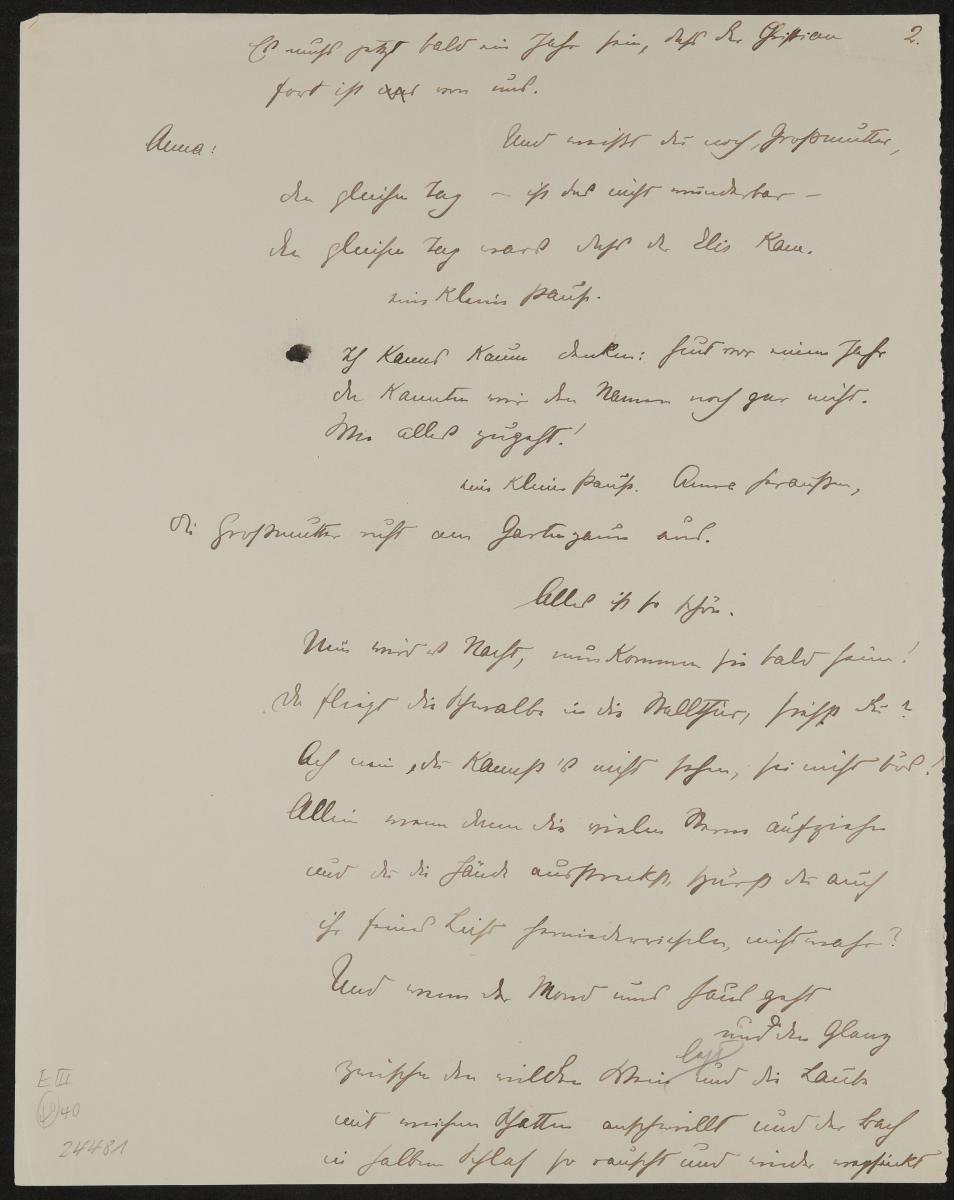 2.
Es muss jetzt bald ein Jahr sein, dass der Christian
fort ist von uns.
Anna: Und weisst du noch, Grossmutter,
den gleichen Tag – ist das nicht wunderbar –
den gleichen Tag wars dass der Elis kam.
eine kleine Pause.
Ich kanns kaum denken: heut vor einem Jahr
da kannten wir den Namen noch gar nicht.
Wie alles zugeht!
eine kleine Pause. Anna draussen,
die Grossmutter ruht am Gartenzaun aus.
Alles ist so schön.
Nun wird es Nacht, nun kommen sie bald heim!
Da fliegt die Schwalbe in die Stallthür, siehst du?
Ach nein, du kannst's nicht sehen, sei nicht bös!
Allein wenn dann die vielen Sterne aufziehn
und du die Hände ausstreckst, spürst du auch
ihr feines Licht herniederrieseln, nicht wahr?
Und wenn der Mond ums Haus geht
und den Glanz
zwischen den wilden Wein und die Laube
mit weichen Schatten anschwillt und der Bach
im halben Schlaf so rauscht und wieder versinkt
E III
40
24481